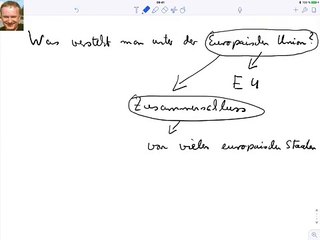 Was versteht man unter der Europäischen Union?
EU
Zusammenschluss
von vielen europäischen Staaten